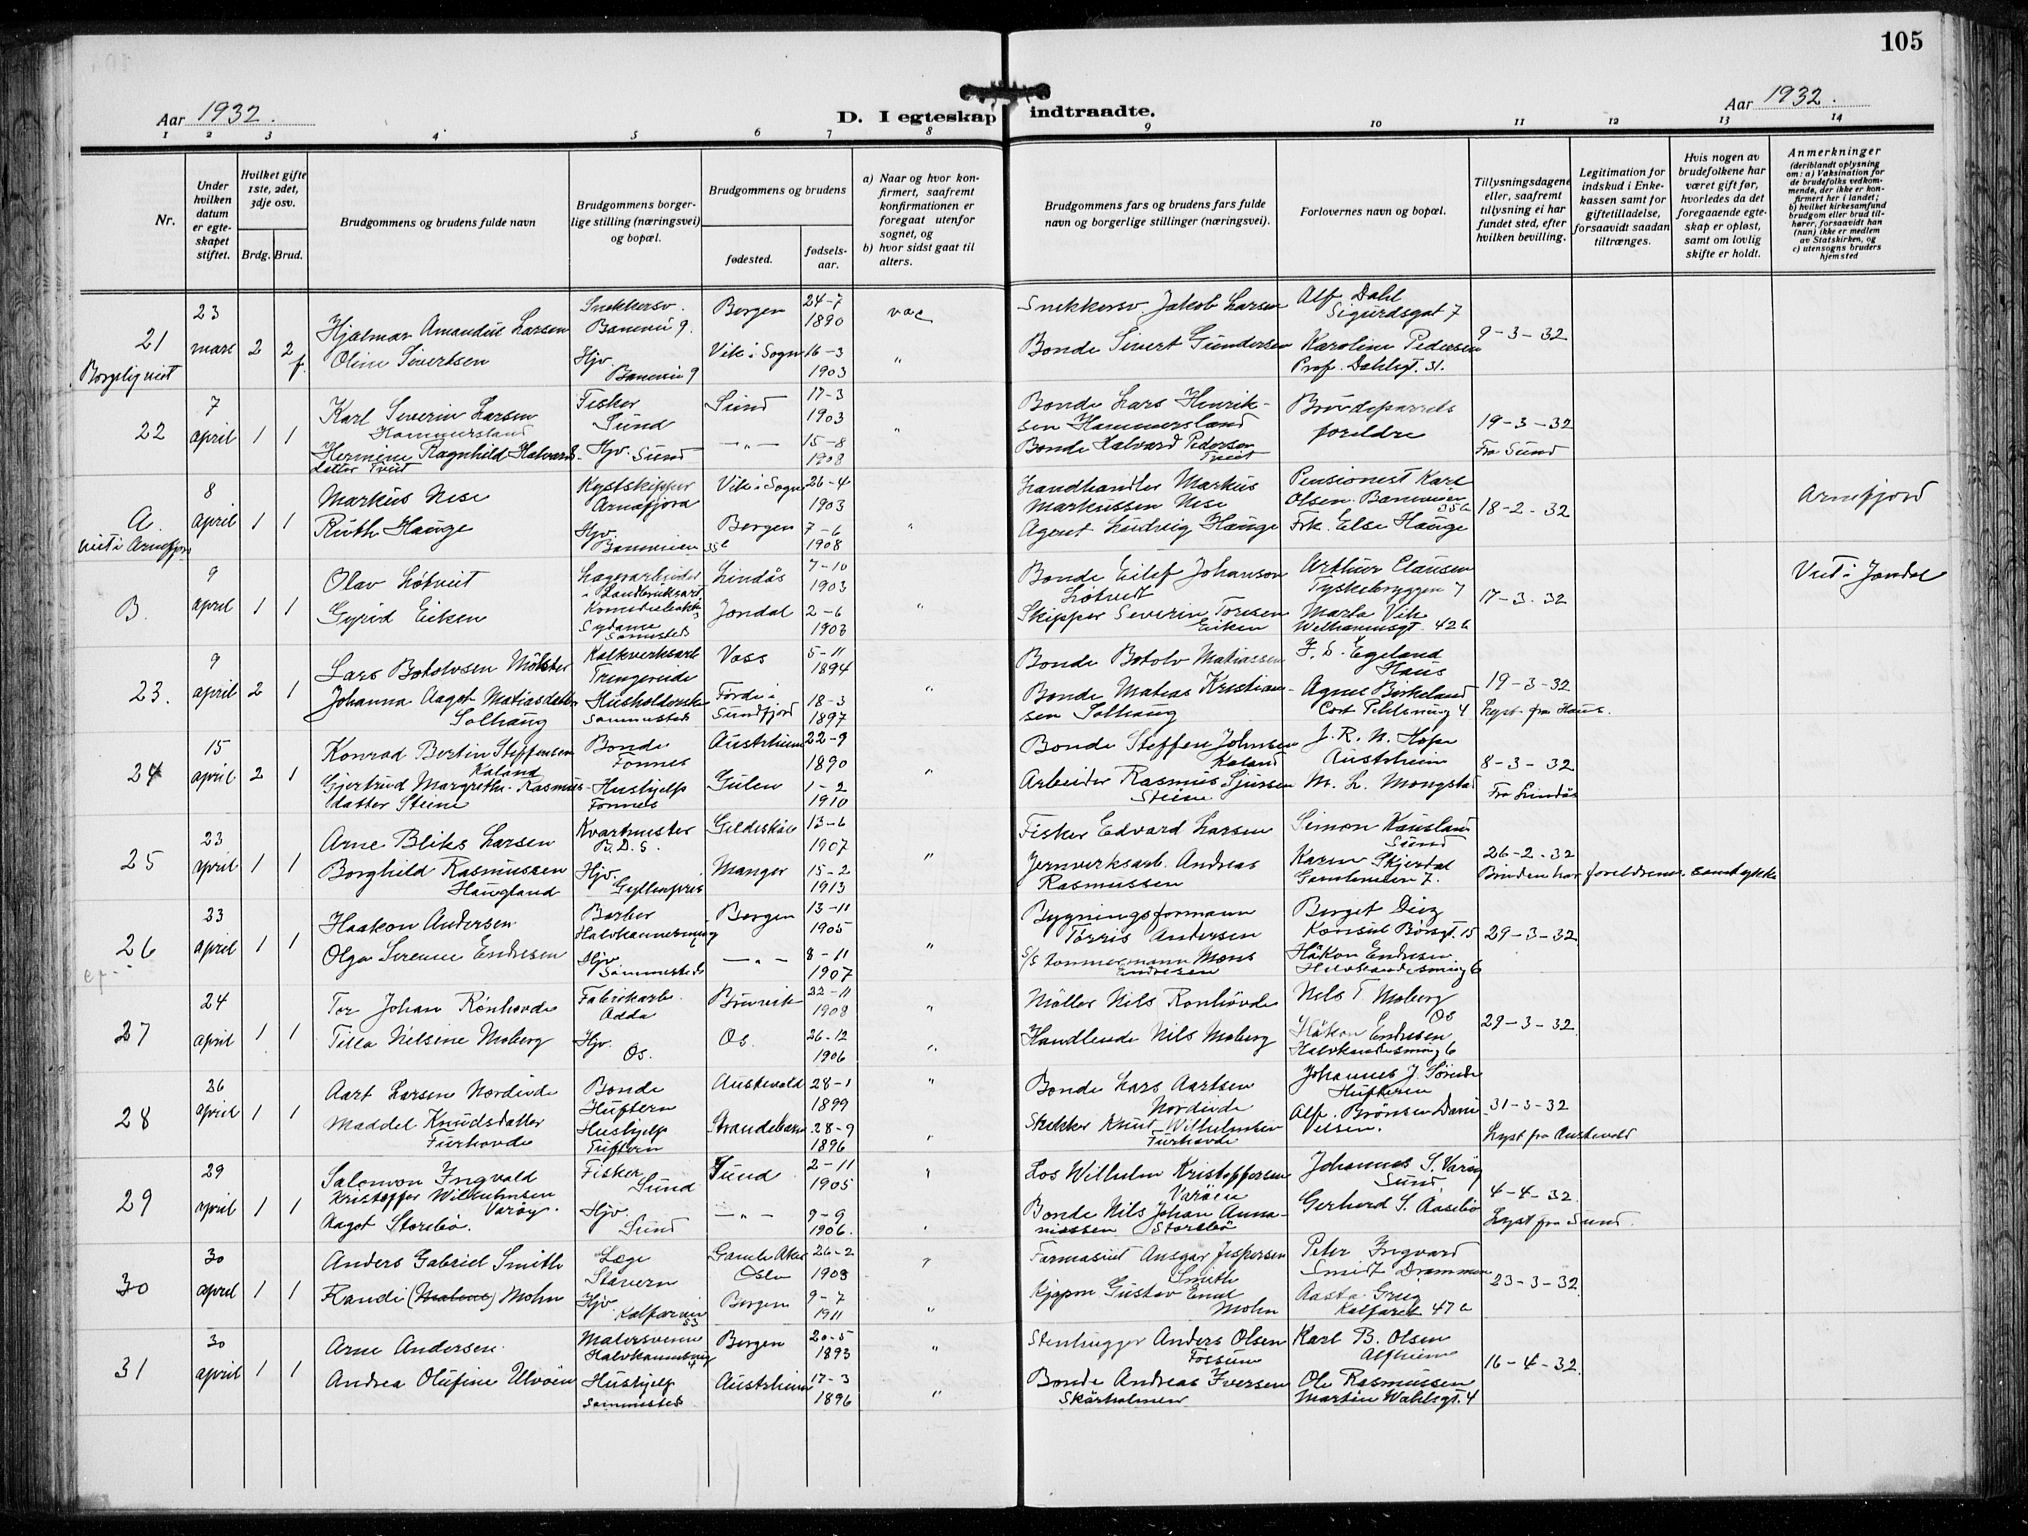 105
Aar 1932.
D. I egteskap indtraadte.
Aar 1932.
1 2 3 4 5 6 7 8 9 10 11 12 13 14
Nr.
Under hvilken datum er egteskapet stiftet.
Hvilket gifte 1ste, 2det, 3dje osv.
Brdg. Brud.
Brudgommens og brudens fulde navn
Brudgommens borgerlige stilling (næringsvei) og bopæl.
Brudgommens og brudens
fødested.
fødselsaar.
a) Naar og hvor konfirmert, saafremt konfirmationen er foregaat utenfor sognet, og
b) hvor sidst gaat til alters.
Brudgommens fars og brudens fars fulde navn og borgerlige stillinger (næringsvei).
Forlovernes navn og bopæl.
Tillysningsdagene eller, saafremt tillysning ei har fundet sted, efter hvilken bevilling.
Legitimation for indskud i Enkekassen samt for giftetilladelse, forsaavidt saadan tiltrænges.
Hvis nogen av brudefolkene har været gift før, hvorledes da det foregaaende egteskap er opløst, samt om lovlig skifte er holdt.
Anmerkninger
(deriblandt oplysning om: a) Vaksination for de brudefolks vedkommende, der ikke er konfirmert her i landet; b) hvilket kirkesamfund brudgom eller brud tilhører, forsaavidt han (hun) ikke er medlem av Statskirken, og c) utensogns bruders hjemsted
21 Borgerlig viet 23 mars 2 2 f.
Hjalmar Amandus Larsen Snekkersv. Baneveie 9. Bergen 24-7 1890 vac
Oline Sivertsen Hjv. Baneveie 9 Vik i Sogn 16-3 1903 "
Snekkersv. Jakob Larsen Alf Dahl Sigurdsgat 7 9-3-32
Bonde Sivert Gundersen Karoline Pedersen Prof. Dahlsgt. 31.
22 7 april 1 1
Karl Severin Larsen Hammersland Fisker Sund Sund 17-3 1903
Hermine Ragnhild Halvardsdatter Tveit Hjv. Sund —"— 15-8 1908
Bonde Lars Henriksen Hammersland Brudeparrets foreldre 19-3-32
Bonde Halvard Pedersen Tveit Fra Sund
A. viet i Arnefjord 8 april 1 1
Markus Nese Kystskipper Arnafjord Vik i Sogn 26-4 1903
Ruth Hauge Hjv. Baneveien 35 b Bergen 7-6 1908
Landhandler Markus Markussen Nese Pensionest Karl Olsen Baneveien 35 b 18-2-32 Arnefjord
Agent Ludvig Hauge Frk. Else Hauge
B. 9 april 1 1
Olav Løtveit Lagerarbeider Lindås 7-10 1903
Gyrid Eiken Sammesteds Jondal 2-6 1903
Bonde Eilef Johanson Løtveit Arthur Clausen Tyskebryggen 7 17-3-32 Viet i Jondal
Skipper Severin Toresen Eiken Marta Vik Welhavensgt. 42 b
23. 9 april 2 1
Lars Botolvsen Mølster Kalkverksarb Trengereide Voss 5-11 1894
Johanna Aagot Matiasdatter Solhaug Husholderske Sammesteds Førde i Sundfjord 18-3 1897
Bonde Botolv Matiassen Egeland Haus 19-3-32
Bonde Matias Kristiansen Solhaug Agnes Birkeland 4 Lyst fra Haus.
24 15 april 2 1
Konrad Bertin Steffensen Kaland Bonde Fonnes Austrheim 22-9 1890
Gjertrud Margrethe Rasmusdatter Steine Hushjelp Fonnes Gulen 1-2 1910
Bonde Steffen Johnsen Kaland J. R. N. Hope Austrheim 8-3-32
Arbeider Rasmus Sjursen Steine M. L. Mongstad Fra Lindås
25 23 april 1 1
Arne Bliks Larsen Kvartmester B. D. S. Gildeskål 13-6 1907
Borghild Rasmussen Haugland Hjv. Gyldenpris Manger 15-2 1913
Fisker Edvard Larsen Simon Kausland Sund 26-2-32
Jernverksarb. Andreas Rasmussen Karin Skjerdal 7. Bruden har foreldrenes samtykke
26 23 april 1 1
Haakon Andersen Barber Bergen 13-11 1905
Olga Serene Endresen Hjv. Sammesteds —"— 8-11 1907
Bygningsformann Torris Andersen Konsul Børsgt. 15 29-3-32
Tømmermann Mons Endresen Håkon Endresen 6
27 24 april 1 1
Tor Johan Rønhovde Fabrikarb. Odda Bruvik 22-11 1908
Tilla Nilsine Moberg Hjv. Os. Os. 26-12 1906
Møller Nils Rønhovde Nils T. Moberg Os 29-3-32
Handlende Nils Moberg Håkon Endresen 6
28 26 april 1 1
Aart Larsen Nordivde Bonde Huftern Austevold 28-1 1899
Maddel Knudsdatter Furhovde Hushjelp Strandebarm 28-9 1896
Bonde Lars Aartsen Nordivde Johannes J. Huftern 31-3-32
Knut Wilhelmsen Furhovde Lyst fra Austevold
29 29 april 1 1
Salomon Ingvald Kristoffer Wilhelmsen Varøy. Fisker Sund Sund 2-11 1905
Aagot Storebø. Hjv. Sund —"— 9-9 1906.
Los Wilhelm Kristoffersen Varøen Johannes S. Varøy Sund 4-4-32
Bonde Nils Johan Annaniassen Storebø Gerhard S. Aasebø Lyst fra Sund.
30 30 april 1 1
Anders Gabriel Smith Læge Stavern Gamle Aker Oslo 26-2 1903
Randi (Malene) Mohn Hjv Kalfarvei 53 Bergen 9-7 1911
Farmasøit Ansgar Jespersen Smith Peter Ingvard Smith Drammen 23-3-32
Kjøpm Gustav Emil Mohn Aasta Grieg Kalfaret 47 b
31 30 april 1 1
Arne Andersen. Malersvenn Bergen 20-5 1893
Andrea Olufine Ulvøen Hushjelp Sammesteds Austrheim 17-3 1896
Stenhugger Anders Olsen Fossum Karl B. Olsen Alfheim 16-4-32
Bonde Andreas Iversen Skårholmen Ole Rasmussen Martin Wahlsgt. 4